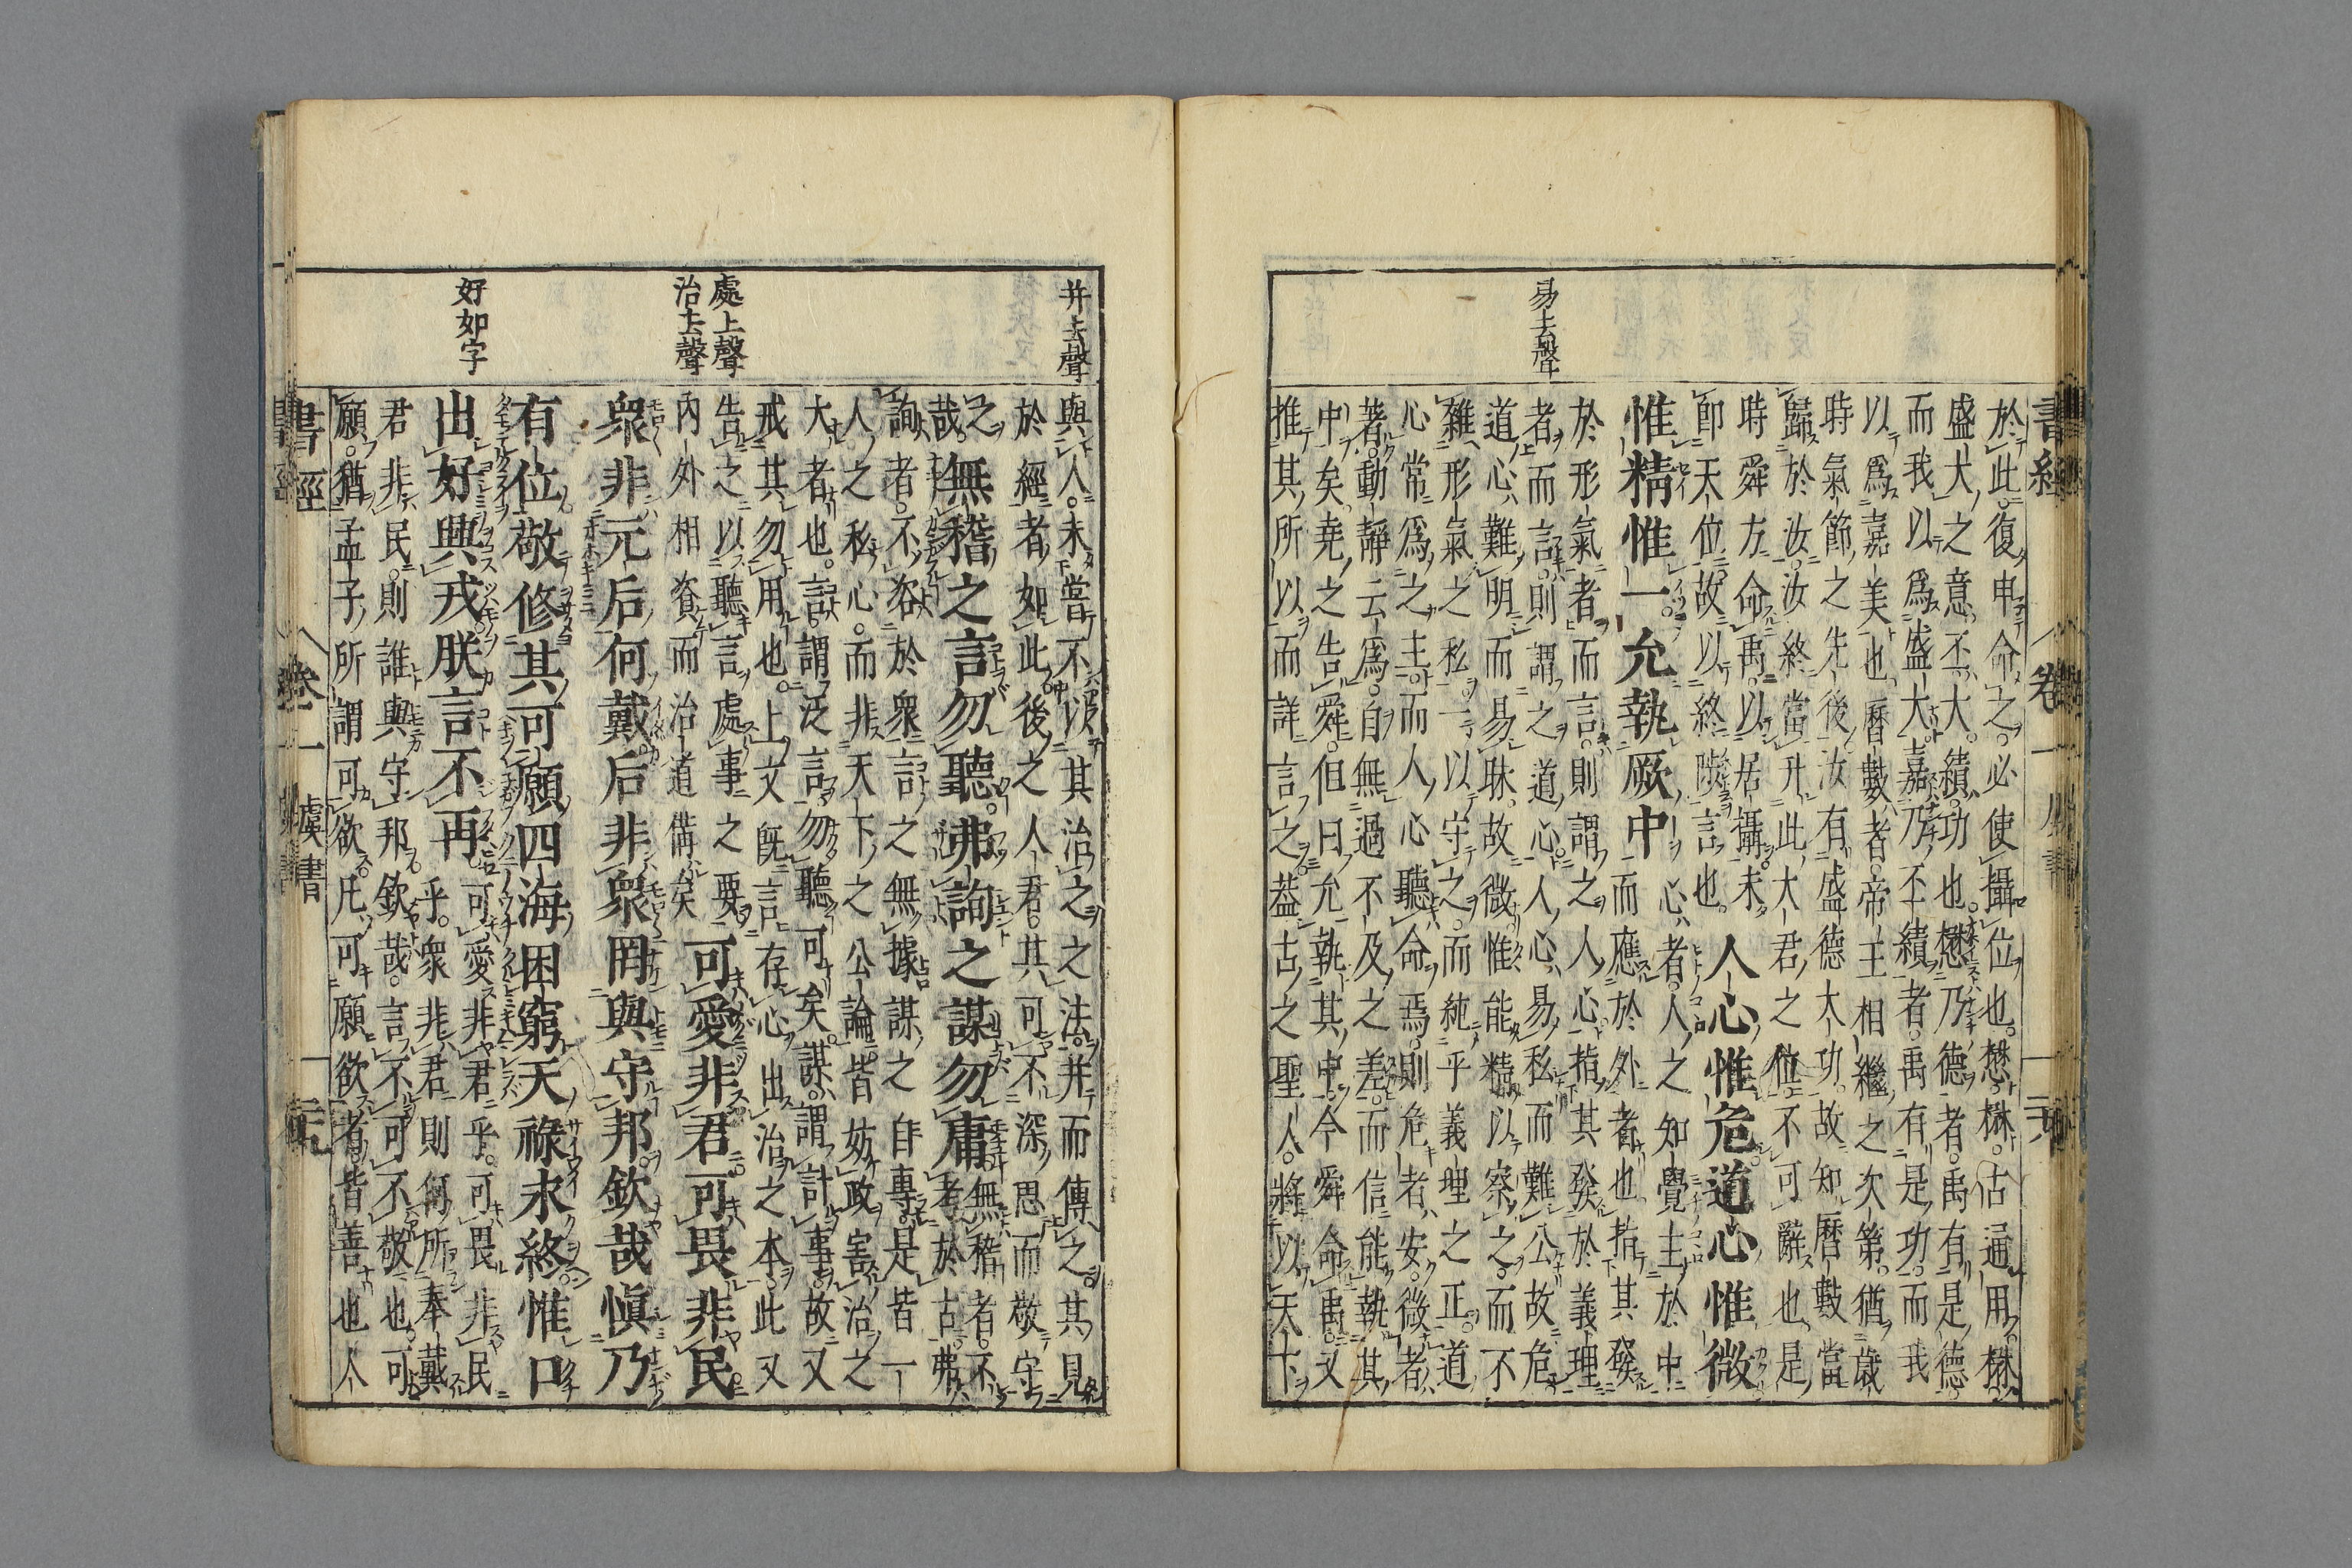 易去聲
於此復申命之必使攝位也懋楙古通用楙
盛大之意丕大績功也懋乃德者禹有是德
而我以爲盛大嘉乃丕績者禹有是功而我
以爲嘉美也曆數者帝王相繼之次第猶歲
時氣節之先後汝有盛德大功故知曆數當
歸於汝汝終當升此大君之位不可辭也是
時舜方命禹以居攝未
即天位故以終陟言也
人心惟危道心惟微
惟精惟一允執厥中
心者人之知覺主於中
而應於外者也指其發
於形氣者而言則謂之人心指其發於義理
者而言則謂之道心人心易私而難公故危
道心難明而易昧故微惟能精以察之而不
雜形氣之私一以守之而純乎義理之正道
心常爲之主而人心聽命焉則危者安微者
著動靜云爲自無過不及之差而信能執其
中矣堯之告舜但曰允執其中今舜命禹又
推其所以而詳言之蓋古之聖人將以天下
書經 卷一
并去聲
處上聲
治去聲
好如字
與人未嘗不以其治之之法并而傳之其見
於經者如此後之人君其可不深思而敬守
之
哉
無稽之言勿聽弗詢之謀勿庸
無稽者不
考於古弗
詢者不咨於衆言之無據謀之自專是皆一
人之私心而非天下之公論皆妨政害治之
大者也言謂泛言勿聽可矣謀謂計事故又
戒其勿用也上文既言存心出治之本此又
告之以聽言處事之要
內外相資而治道備矣
可愛非君可畏非民
衆非元后何戴后非衆罔與守邦欽哉愼乃
有位敬修其可願四海困窮天祿永終惟口
出好興戎朕言不再
可愛非君乎可畏非民
乎衆非君則何所奉戴
君非民則誰與守邦欽哉言不可不敬也可
願猶孟子所謂可欲凡可願欲者皆善也人
書經 卷一 虞書